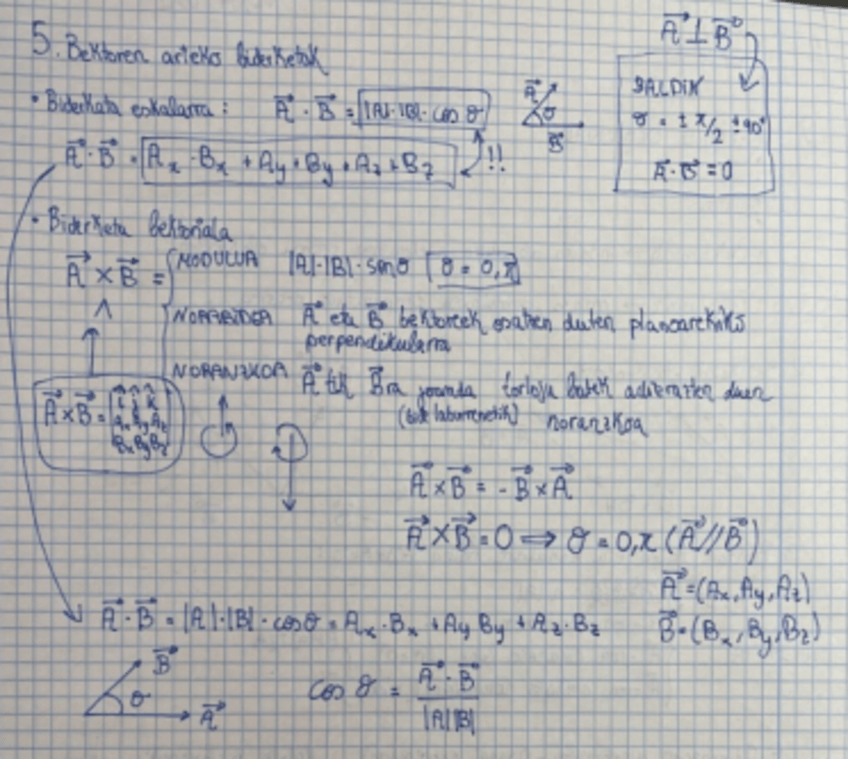 5. Bektoren arteko biderketak
A⃗ ⊥ B⃗
BALDIN
θ = ± π/2 ±90°
A⃗ · B⃗ = 0
• Biderketa eskalarra : A⃗ · B⃗ = |A| · |B| · cos θ
A⃗ θ B⃗
A⃗ · B⃗ = Ax · Bx + Ay · By + Az + Bz !!
• Biderketa bektoriala
A⃗ × B⃗ =
MODULUA |A| · |B| · sin θ θ = 0, π
NORABIDEA A⃗ eta B⃗ bektoreek osatzen duten planoarekiko
perpendikularra
NORANZKOA A⃗ tik B⃗ra joanda torloju batek adierazten duen
(bide laburrenetik) noranzkoa
A⃗ × B⃗ = | î ĵ k̂ |
| Ax Ay Az |
| Bx By Bz |
A⃗ × B⃗ = - B⃗ × A⃗
A⃗ × B⃗ = 0 ⟹ θ = 0, π (A⃗ // B⃗)
A⃗ = (Ax, Ay, Az)
B⃗ = (Bx, By, Bz)
A⃗ · B⃗ = |A| · |B| · cos θ = Ax · Bx + Ay By + Az · Bz
B⃗ θ A⃗
cos θ = A⃗ · B⃗ / |A||B|